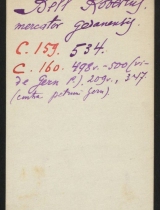 Bell Robertus,
mercator gedanensis
C. 159. 534.
C. 160. 498v.-500 (vi-
de Gern P.). 209v., 347
(contra petrum Gern).